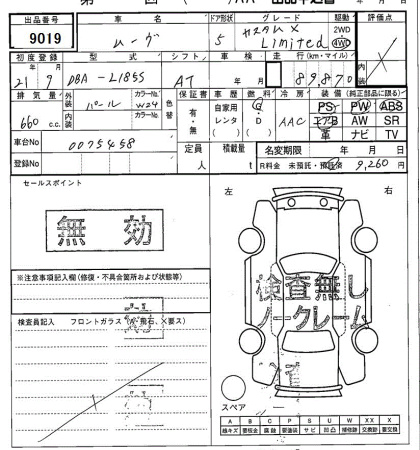 出品番号
9019
車名
ムーヴ
ドア形状
5
グレード
カスタムX
Limited
駆動
2WD
4WD
評価点
初度登録
21年9月
型式
DBA-L185S
シフト
AT
車検
年 月
走行(km・マイル)
89,870
内装
排気量
660 c.c.
外装
パール
カラーNo.
W24
内装
カラーNo.
色替
保証書
有・無
車歴
自家用
レンタ
( )
燃料
G
D
( )
冷房
AAC
装備(純正部品に限る)
PS PW ABS
エアB AW SR
革 ナビ TV
車台No
0075458
登録No
定員
人
積載量
t
名変期限
年 月 日
R料金 未預託・預託済
9,260円
セールスポイント
無効
左
右
検査無し
ノークレーム
※注意事項記入欄(修復・不具合箇所および状態等)
検査員記入 フロントガラス(A・飛石、X要ス)
スペア
A B C P S U W XX X
線キズ 要板金 腐蝕 要塗装 サビ 凹凸 補修跡 交換跡 要交換